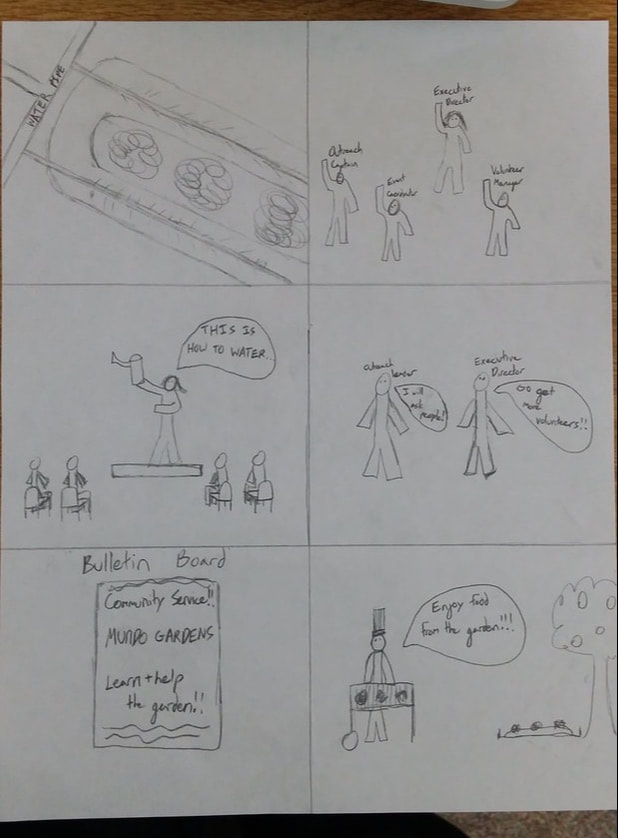 WATER PIPE
Executive
Director
Outreach
Captain
Event
Coordinator
Volunteer
Manager
THIS IS
HOW TO WATER...
Outreach
Executive
Director
I will
ask
people!
Go get
more
volunteers!!
Bulletin Board
Community Service!!
MUNDO GARDENS
Learn + help
the garden!!
Enjoy food
from the garden!!!